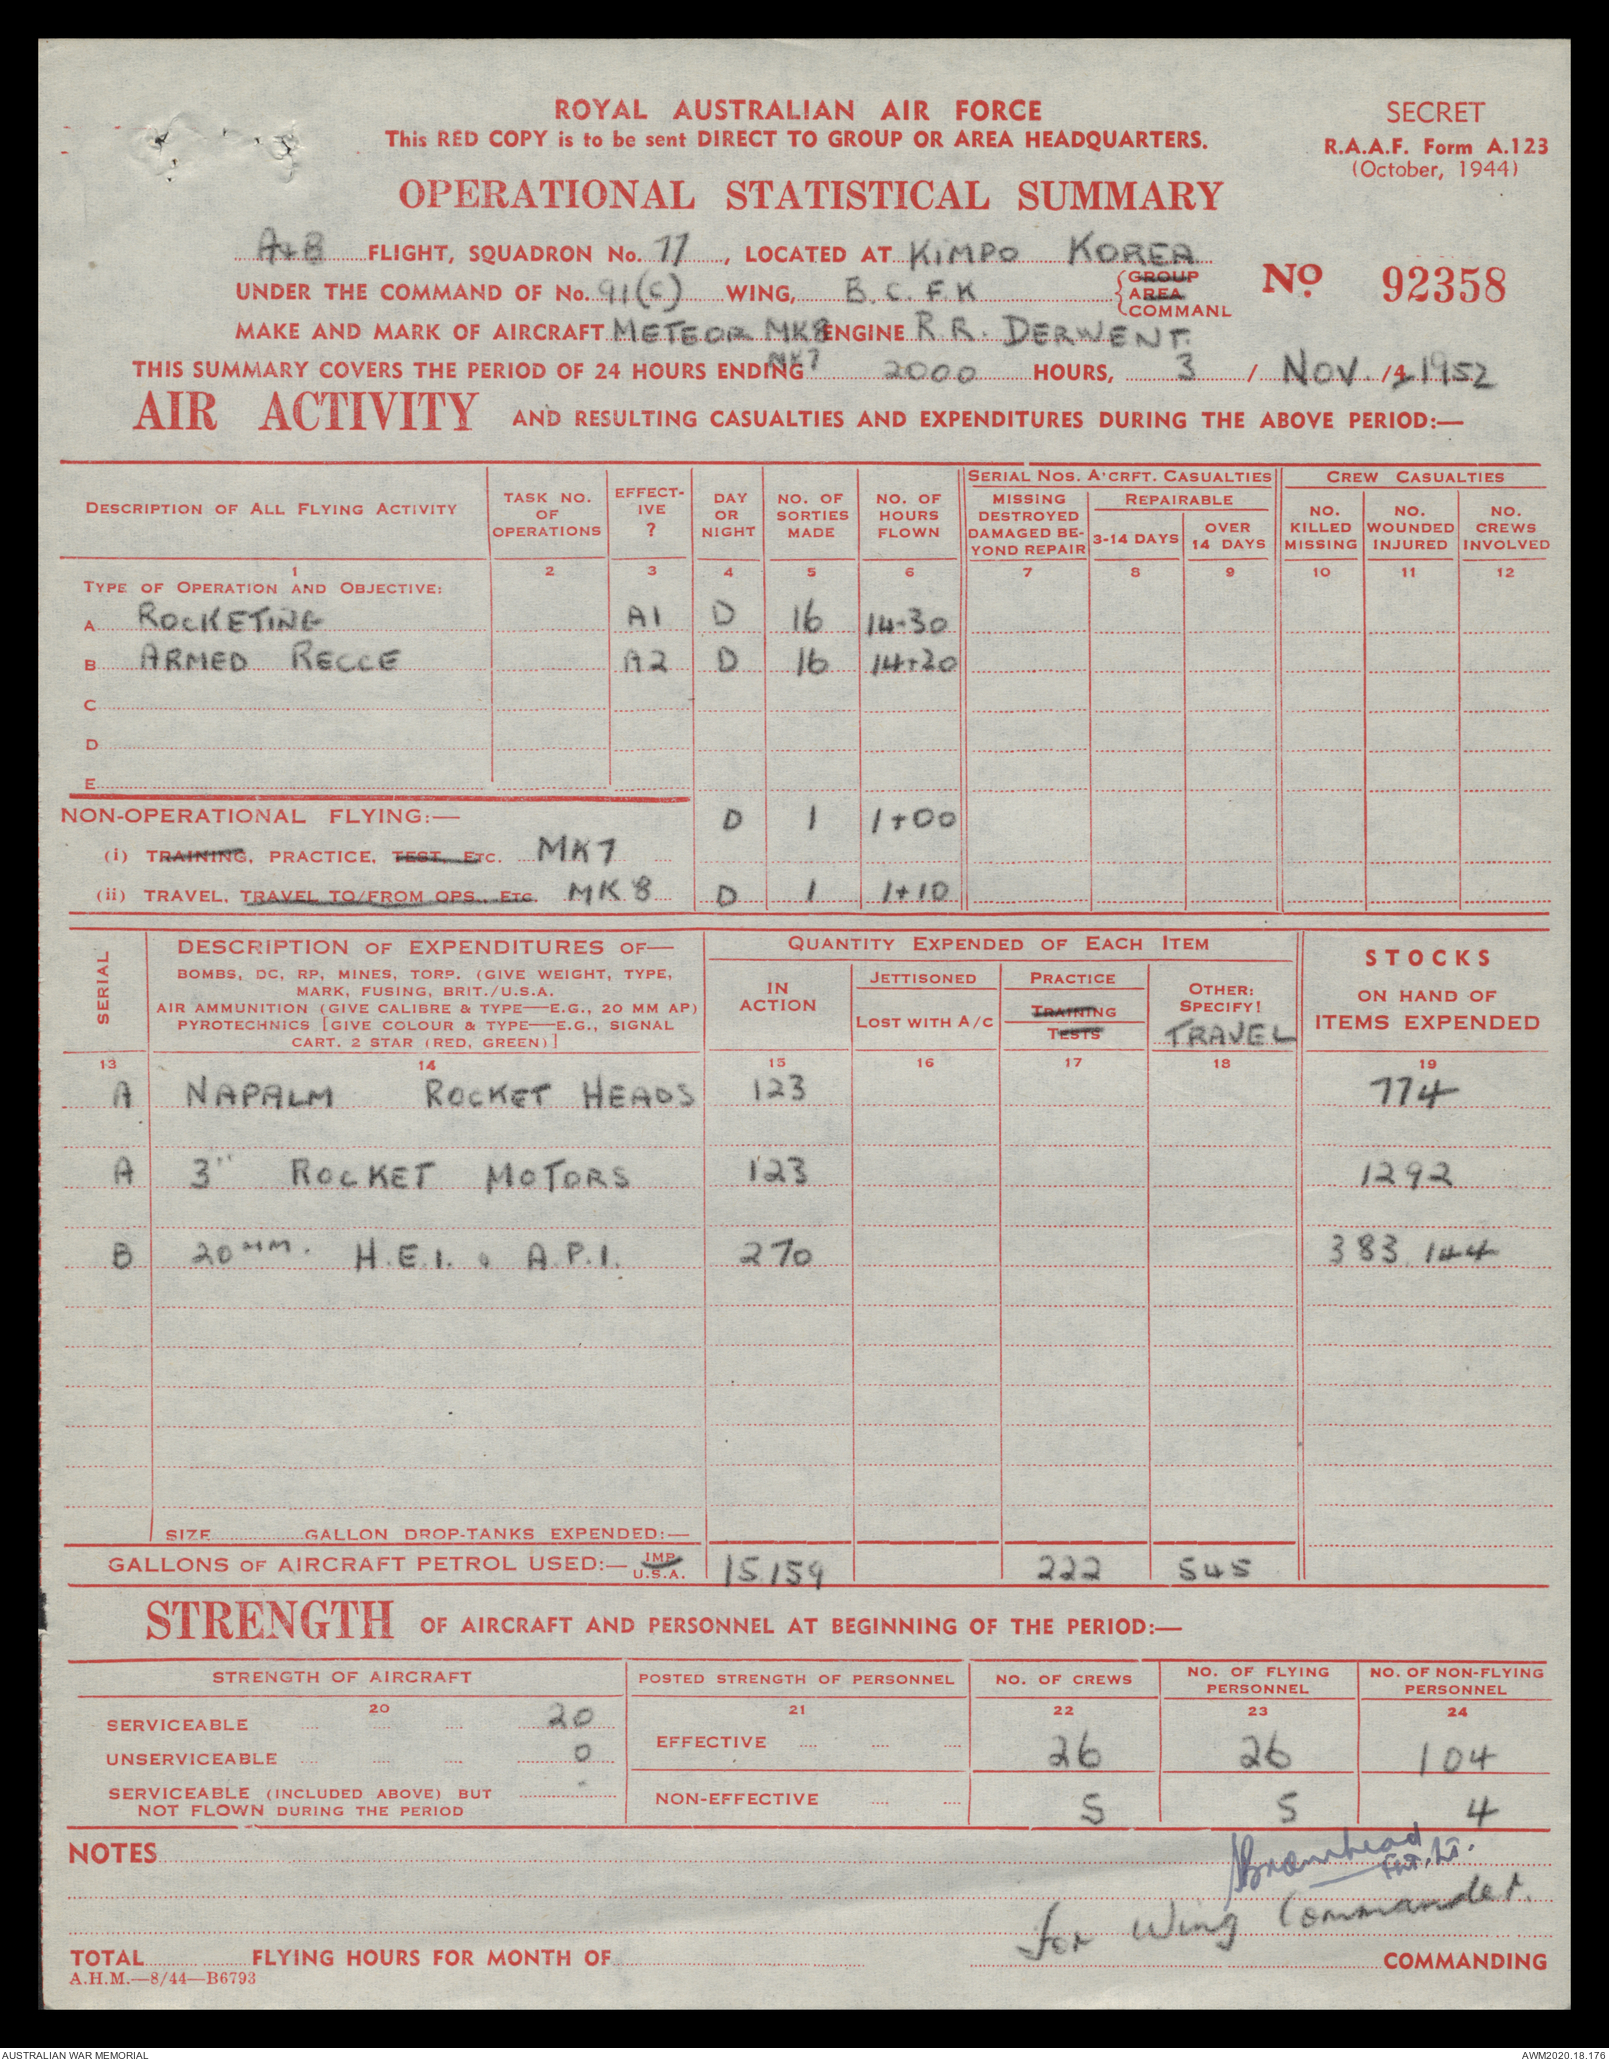 ROYAL AUSTRALIAN AIR FORCE
This RED COPY is to be sent DIRECT TO GROUP OR AREA HEADQUARTERS.
SECRET
R.A.A.F. Form A.123
(October, 1944)
OPERATIONAL STATISTICAL SUMMARY
A+B FLIGHT, SQUADRON No. 77, LOCATED AT KIMPO KOREA
UNDER THE COMMAND OF No. 91(C) WING, B.C.F.K GROUP AREA COMMANL
No 92358
MAKE AND MARK OF AIRCRAFT METEOR MK8 ENGINE R.R. DERWENT.
MK7
THIS SUMMARY COVERS THE PERIOD OF 24 HOURS ENDING 2000 HOURS, 3 / NOV. /4 1952
AIR ACTIVITY AND RESULTING CASUALTIES AND EXPENDITURES DURING THE ABOVE PERIOD:—
DESCRIPTION OF ALL FLYING ACTIVITY
TASK NO. OF OPERATIONS
EFFECT-IVE ?
DAY OR NIGHT
NO. OF SORTIES MADE
NO. OF HOURS FLOWN
SERIAL NOS. A'CRFT. CASUALTIES
MISSING DESTROYED DAMAGED BE-YOND REPAIR
REPAIRABLE
3-14 DAYS
OVER 14 DAYS
CREW CASUALTIES
NO. KILLED MISSING
NO. WOUNDED INJURED
NO. CREWS INVOLVED
1 2 3 4 5 6 7 8 9 10 11 12
TYPE OF OPERATION AND OBJECTIVE:
A ROCKETING A1 D 16 14-30
B ARMED RECCE A2 D 16 14+20
C
D
E
NON-OPERATIONAL FLYING:— D 1 1+00
(i) TRAINING, PRACTICE, TEST, ETC. MK7
(ii) TRAVEL, TRAVEL TO/FROM OPS., ETC. MK 8 D 1 1+10
SERIAL
DESCRIPTION OF EXPENDITURES OF—
BOMBS, DC, RP, MINES, TORP. (GIVE WEIGHT, TYPE,
MARK, FUSING, BRIT./U.S.A.
AIR AMMUNITION (GIVE CALIBRE & TYPE—E.G., 20 MM AP)
PYROTECHNICS [GIVE COLOUR & TYPE—E.G., SIGNAL
CART. 2 STAR (RED, GREEN)]
QUANTITY EXPENDED OF EACH ITEM
IN ACTION
JETTISONED
LOST WITH A/C
PRACTICE
TRAINING
TESTS
OTHER: SPECIFY!
TRAVEL
STOCKS
ON HAND OF
ITEMS EXPENDED
13 14 15 16 17 18 19
A NAPALM ROCKET HEADS 123 774
A 3" ROCKET MOTORS 123 1292
B 20MM. H.E.I. & A.P.I. 270 383,144
SIZE GALLON DROP-TANKS EXPENDED:—
GALLONS OF AIRCRAFT PETROL USED:— IMP. U.S.A. 15,159 222 545
STRENGTH OF AIRCRAFT AND PERSONNEL AT BEGINNING OF THE PERIOD:—
STRENGTH OF AIRCRAFT
POSTED STRENGTH OF PERSONNEL
NO. OF CREWS
NO. OF FLYING PERSONNEL
NO. OF NON-FLYING PERSONNEL
20 21 22 23 24
SERVICEABLE 20
UNSERVICEABLE 0
SERVICEABLE (INCLUDED ABOVE) BUT
NOT FLOWN DURING THE PERIOD -
EFFECTIVE 26 26 104
NON-EFFECTIVE 5 5 4
NOTES
Bromhead Flt. Lt.
for Wing Commander.
TOTAL FLYING HOURS FOR MONTH OF COMMANDING
A.H.M.—8/44—B6793
AUSTRALIAN WAR MEMORIAL
AWM2020.18.176